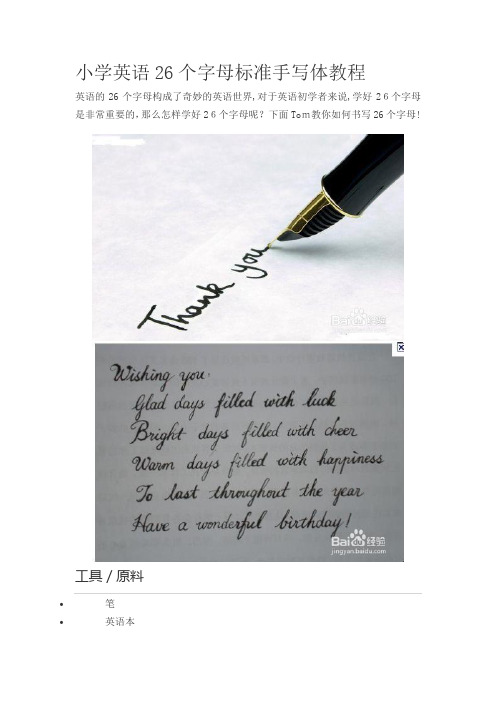 小学英语26个字母标准手写体教程
英语的26个字母构成了奇妙的英语世界,对于英语初学者来说,学好26个字母
是非常重要的,那么怎样学好26个字母呢?下面Tom教你如何书写26个字母!
Thank you
Bai 经验
Wishing you.
Glad days filled with luck
Bright days filled with cheer
Warm days filled with happiness
To last throughout the year
Have a wonderful birthday!
Bai 经验
jingyan.baidu.com
工具/原料
• 笔
• 英语本